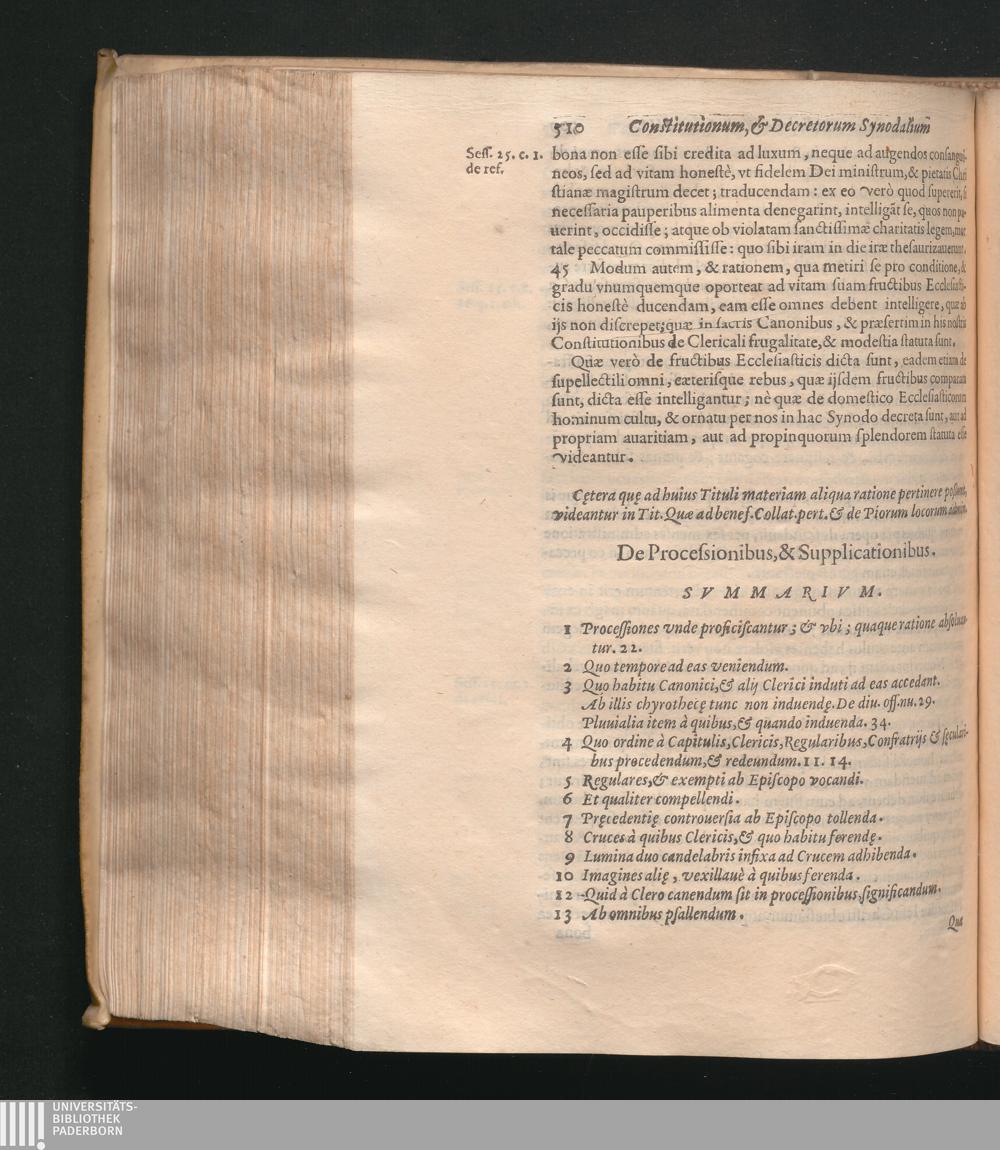 510 Constitutionum, & Decretorum Synodalium
Sess. 25. c. 1.
de ref.
bona non esse sibi credita ad luxum, neque ad augendos consangui-
neos, sed ad vitam honestè, vt fidelem Dei ministrum, & pietatis Chri
stianæ magistrum decet; traducendam: ex eo verò quod supererit, si
necessaria pauperibus alimenta denegarint, intelligãt se, quos non pa-
uerint, occidisse; atque ob violatam sanctissimæ charitatis legem, mor
tale peccatum commississe: quo sibi iram in die iræ thesaurizauerunt.
45 Modum autem, & rationem, qua metiri se pro conditione, &
gradu vnumquemque oporteat ad vitam suam fructibus Ecclesiasti-
cis honestè ducendam, eam esse omnes debent intelligere, quæ ab
ijs non discrepet; quæ in sacris Canonibus, & præsertim in his nostris
Constitutionibus de Clericali frugalitate, & modestia statuta sunt.
Quæ verò de fructibus Ecclesiasticis dicta sunt, eadem etiam de
supellectili omni, cæterisque rebus, quæ ijsdem fructibus comparata
sunt, dicta esse intelligantur; nè quæ de domestico Ecclesiasticorum
hominum cultu, & ornatu per nos in hac Synodo decreta sunt, aut ad
propriam auaritiam, aut ad propinquorum splendorem statuta esse
videantur.
Cętera quę ad huius Tituli materiam aliqua ratione pertinere possunt,
videantur in Tit. Quæ ad benef. Collat. pert. & de Piorum locorum
De Processionibus, & Supplicationibus.
SVMMARIVM.
1 Processiones vnde proficiscantur; & vbi; quaque ratione absoluan-
tur. 22.
2 Quo tempore ad eas veniendum.
3 Quo habitu Canonici, & alij Clerici induti ad eas accedant.
Ab illis chyrothecę tunc non induendę. De diu. off. nu. 29.
Pluuialia item à quibus, & quando induenda. 34.
4 Quo ordine à Capitulis, Clericis, Regularibus, Confratrijs & sęculari-
bus procedendum, & redeundum. 11. 14.
5 Regulares, & exempti ab Episcopo vocandi.
6 Et qualiter compellendi.
7 Pręcedentię controuersia ab Episcopo tollenda.
8 Cruces à quibus Clericis, & quo habitu ferendę.
9 Lumina duo candelabris infixa ad Crucem adhibenda.
10 Imagines alię, vexillauè à quibus ferenda.
12 Quid à Clero canendum sit in processionibus, significandum.
13 Ab omnibus psallendum.
Qua
UNIVERSITÄTS-
BIBLIOTHEK
PADERBORN